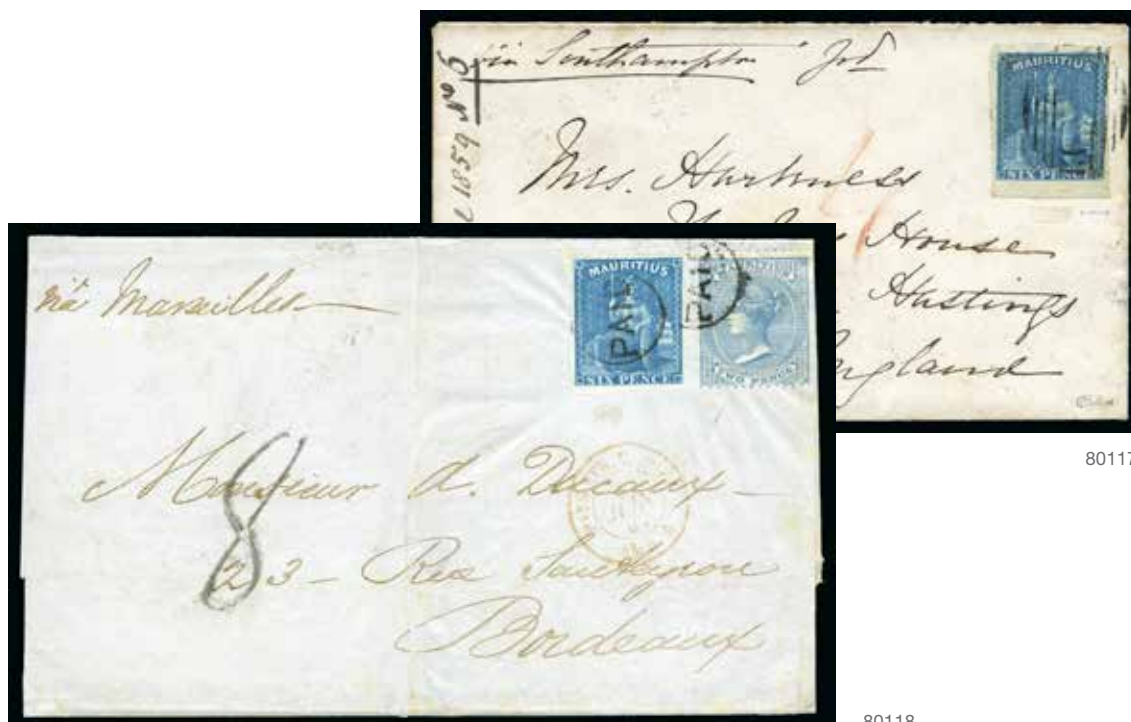 via Southampton"
1859
MAURITIUS
SIX PENCE
Mrs. Harkness
House
Hastings
England
80117
via Marseilles
MAURITIUS
SIX PENCE
PAID
PAID
TWO PENCE
8
Monsieur A. Ducaux
23 - Rue
Bordeaux
80118